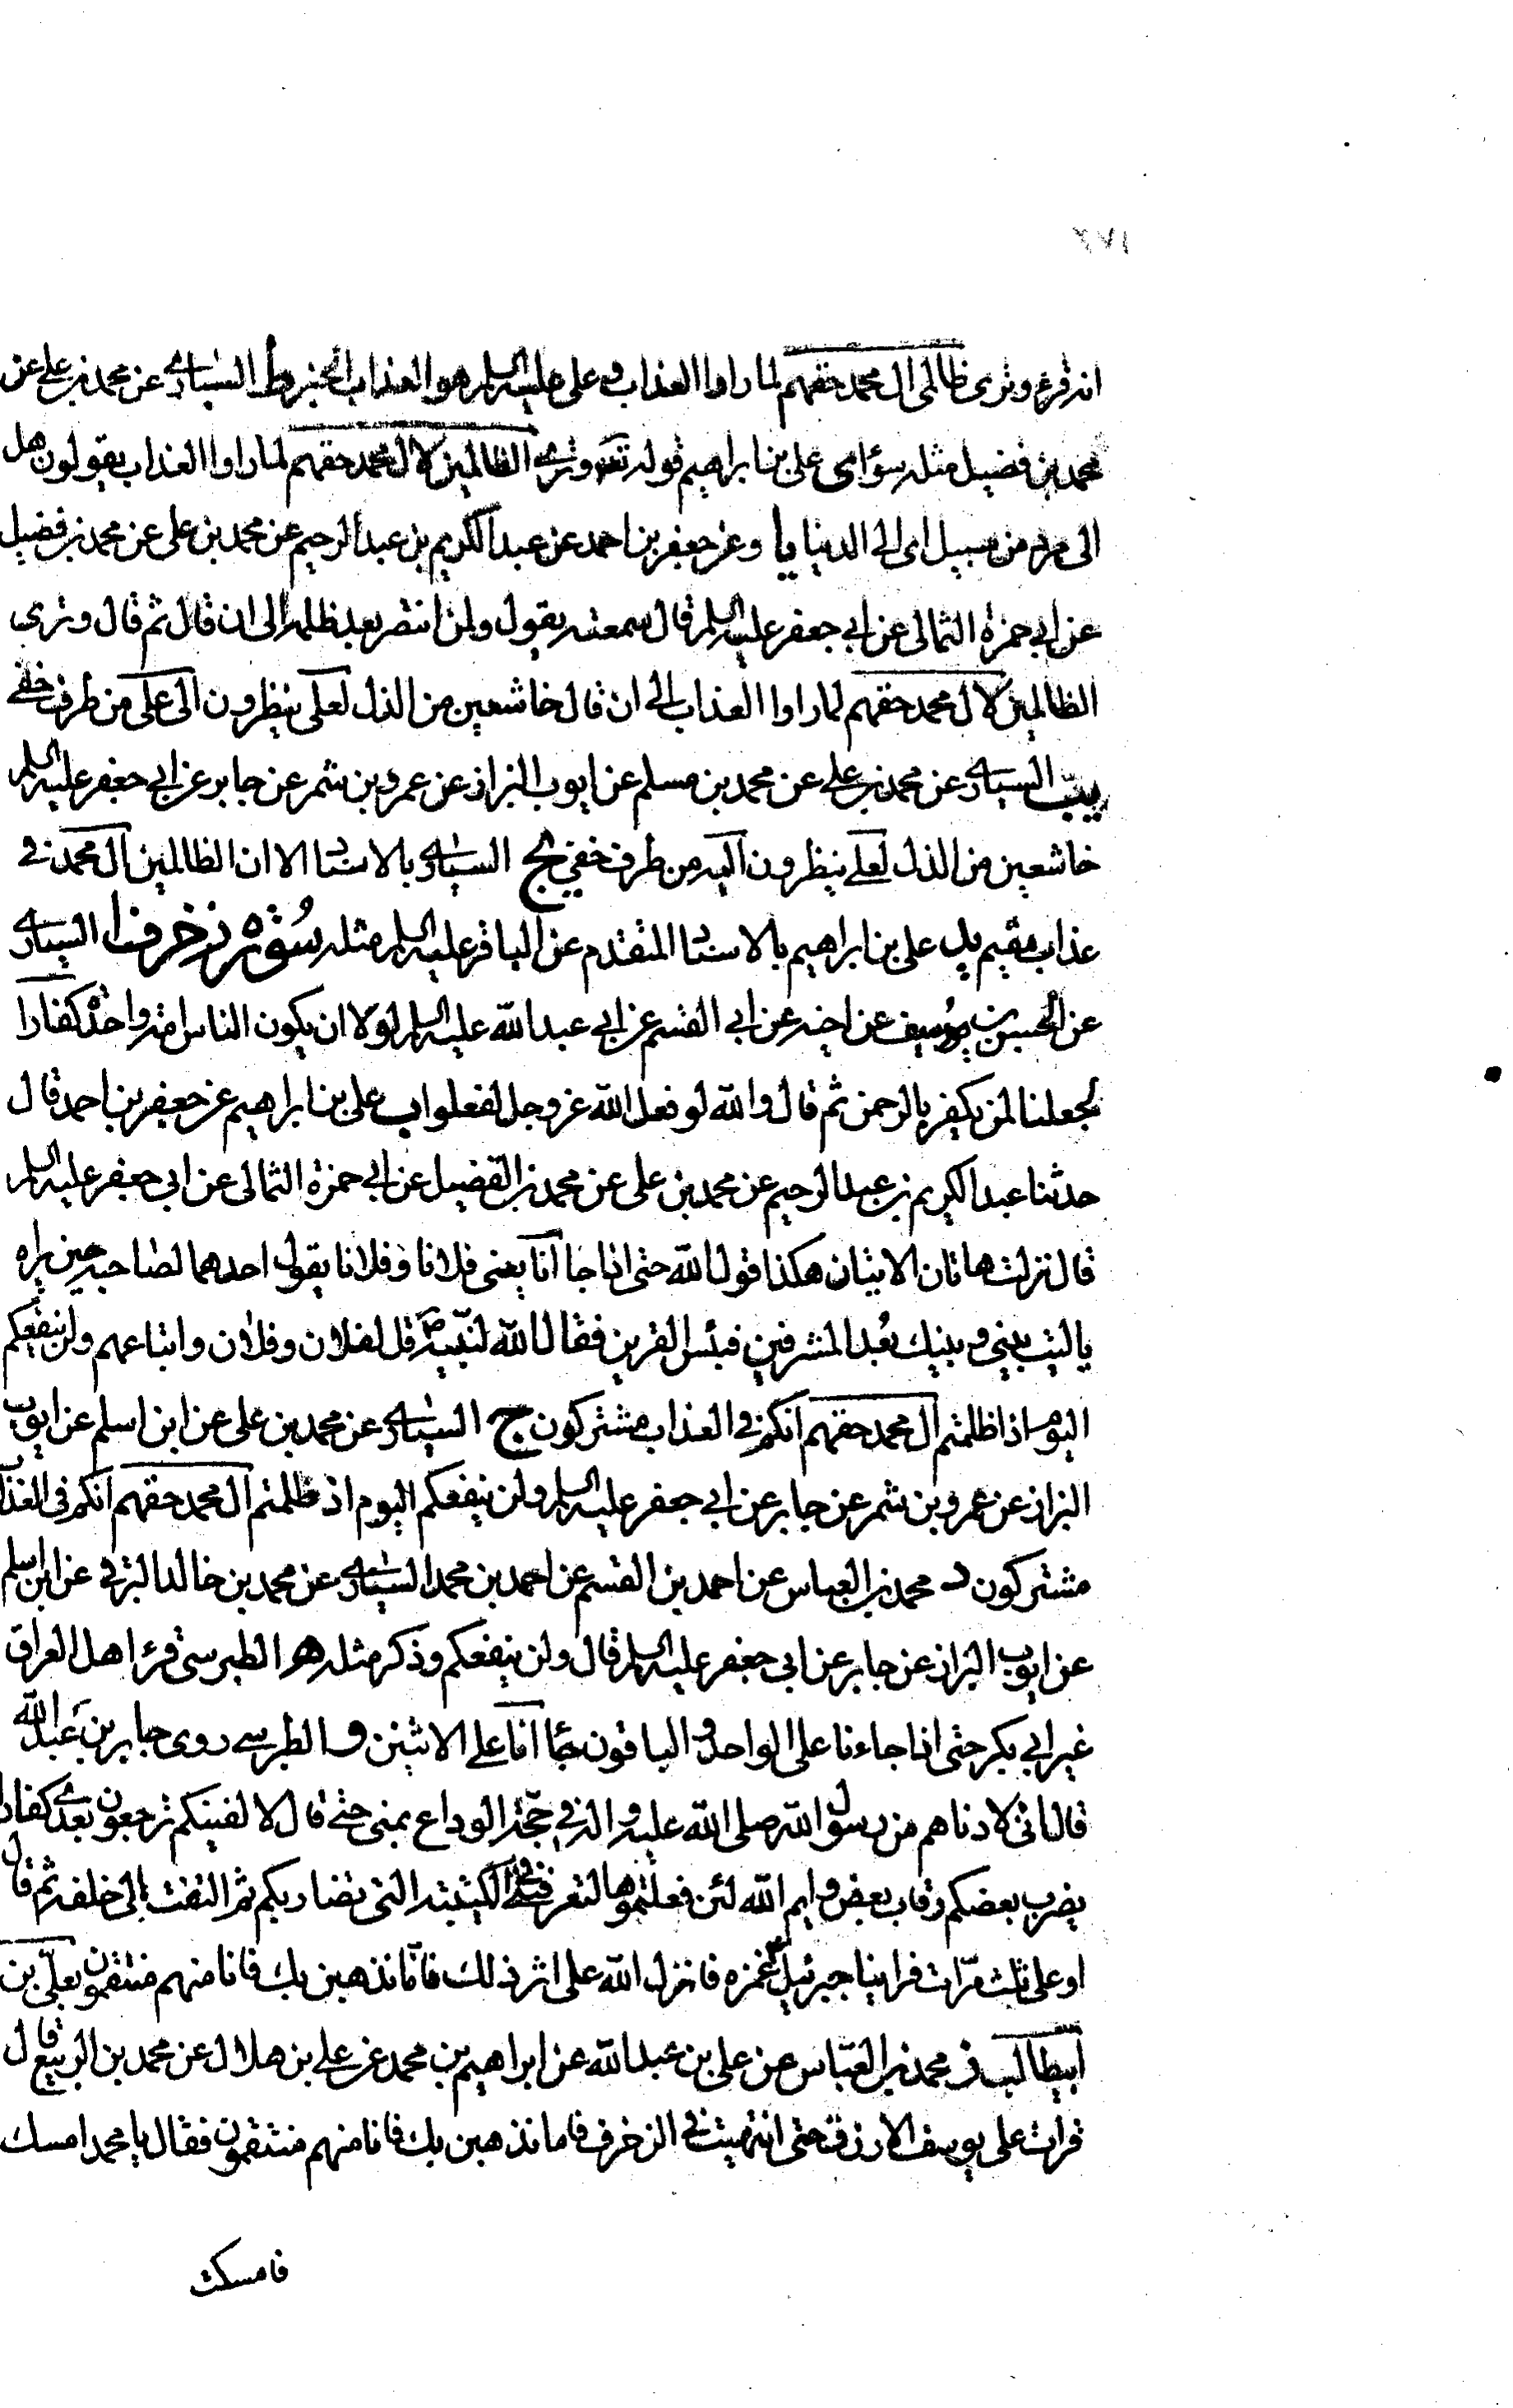 انه قرئ وترى ظالمى ال محمد حقهم لما راوا العذاب وعلى عليه السلم هو العذاب الخبر يط السيارى عن محمد بن على عن
محمد بن فضيل مثله سواء ى على بن ابراهيم قوله تعه وترى الظالمين لال محمد حقهم لما راوا العذاب يقولون هل
الى مرد من سبيل اى الى الدنيا يا وعن جعفر بن احمد عن عبد الكريم بن عبد الرحيم عن محمد بن على عن محمد بن فضيل
عن ابى حمزه الثمالى عن ابى جعفر عليه السلم قال سمعته يقول ولمن انتصر بعد ظلمه الى ان قال ثم قال وترى
الظالمين لال محمد حقهم لما راوا العذاب الى ان قال خاشعين من الذل لعلى ينظرون الى على من طرف خفى
يب السيارى عن محمد بن على عن محمد بن مسلم عن ايوب البزاز عن عمرو بن شمر عن جابر عن ابى جعفر عليه السلم
خاشعين من الذل لعلى ينظرون اليه من طرف خفى يج السيارى بالاسناد الا ان الظالمين ال محمد فى
عذاب مقيم يد على بن ابراهيم بالاسناد المتقدم عن الباقر عليه السلم مثله سورة زخرف ا السيارى
عن الحسين بن يوسف عن اخيه عن ابى القسم عن ابى عبد الله عليه السلم لولا ان يكون الناس امة واحدة كفارا
لجعلنا لمن يكفر بالرحمن ثم قال والله لو فعل الله عز وجل لفعلوا ب على بن ابراهيم عن جعفر بن احمد قال
حدثنا عبد الكريم بن عبد الرحيم عن محمد بن على عن محمد بن الفضيل عن ابى حمزه الثمالى عن ابى جعفر عليه السلم
قال نزلت هاتان الايتان هكذا قول الله حتى اذا جا انا يعنى فلانا وفلانا يقول احدهما لصاحبه حين يراه
يا ليت بينى وبينك بعد المشرقين فبئس القرين فقال الله لنبيه ص قل لفلان وفلان واتباعهم ولن ينفعكم
اليوم اذ اظلمتم ال محمد حقهم انكم فى العذاب مشتركون ج السيارى عن محمد بن على عن ابن اسلم عن ايوب
البزاز عن عمرو بن شمر عن جابر عن ابى جعفر عليه السلم ولن ينفعكم اليوم اذ ظلمتم ال محمد حقهم انكم فى العذاب
مشتركون د محمد بن العباس عن احمد بن القسم عن احمد بن محمد السيارى عن محمد بن خالد البرقى عن ابن اسلم
عن ايوب البزاز عن جابر عن ابى جعفر عليه السلم قال ولن ينفعكم وذكر مثله ه الطبرسى قرء اهل العراق
غير ابى بكر حتى اذا جاءنا على الواحد والباقون جئا انا على الاثنين و الطبرسى روى جابر بن عبد الله
قال انى لادناهم من رسول الله صلى الله عليه واله فى حجة الوداع بمنى حتى قال لا الفينكم ترجعون بعدى كفارا
يضرب بعضكم رقاب بعض وايم الله لئن فعلتموها لتعرفنى فى الكتيبة التى تضاربكم ثم التفت الى خلفه ثم قال
او على ثلث مرات فراينا جبرئيل غمزه فانزل الله على اثر ذلك فاما نذهبن بك فانا منهم منتقمون بعلى بن
ابيطالب ز محمد بن العباس عن على بن عبد الله عن ابراهيم بن محمد عن على بن هلال عن محمد بن الربيع قال
قرات على يوسف الازرق حتى انتهيت فى الزخرف فاما نذهبن بك فانا منهم منتقمون فقال يا محمد امسك
فامسكت